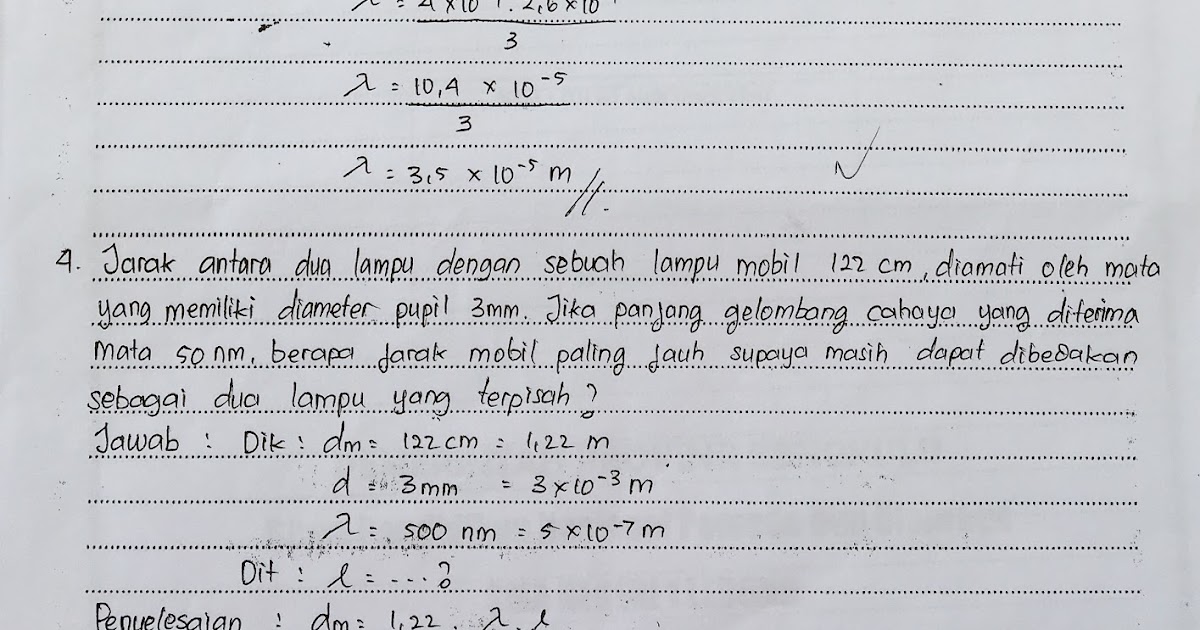 λ = 4 x 10⁻¹ . 2,6 x 10⁻⁴
3
λ = 10,4 x 10⁻⁵
3
λ = 3,5 x 10⁻⁵ m //.
4. Jarak antara dua lampu dengan sebuah lampu mobil 122 cm, diamati oleh mata
yang memiliki diameter pupil 3mm. Jika panjang gelombang cahaya yang diterima
mata 50 nm, berapa jarak mobil paling jauh supaya masih dapat dibedakan
sebagai dua lampu yang terpisah?
Jawab : Dik : dm = 122 cm = 1,22 m
d = 3mm = 3 x 10⁻³ m
λ = 500 nm = 5 x 10⁻⁷ m
Dit : l = ....?
Penyelesaian : dm = 1,22 . λ . l